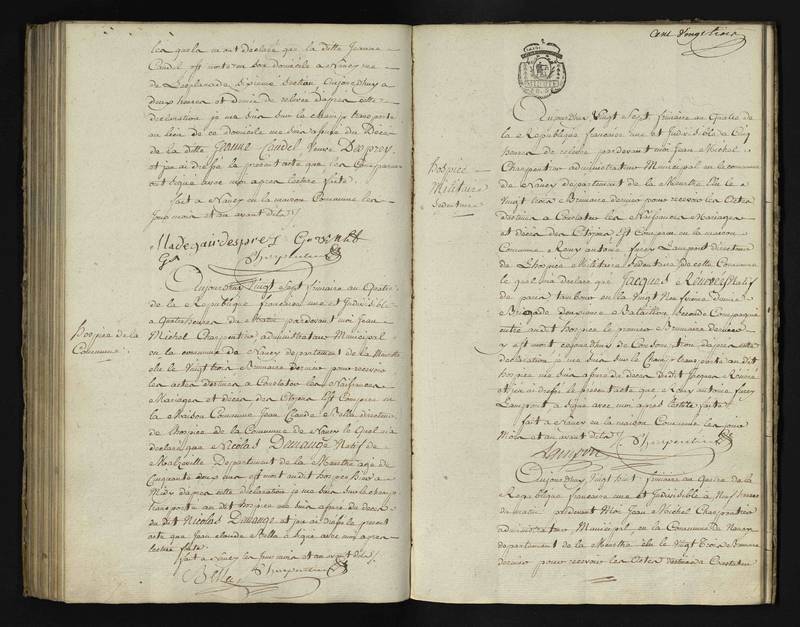 les quels m'ont déclaré que la ditte Jeanne
Candel est morte en son domicile a Nancy rue
de L'esplanade Sixieme Section, aujourdhuy a
deux heures et demie de relevée dapres cette
declaration je me suis sur le champ transporté
au lieu de ce domicile me suis assuré du Décès
de la ditte Jeanne Candel Veuve Desprez
et jai dressé le present acte que les Comparans
ont signé avec moi apres lecture faite.
fait a Nancy en la maison Commune les
Jour mois et an avant dits
Charpentier
Aujourdhuy Vingt Sept frimaire an Quatre
de la République francaise une et Indivisible
a Quatre heures du Matin pardevant moi Jean
Hospice de la
Commune
Michel Charpentier, administrateur Municipal
en la commune de Nancy departement de la Meurthe
élu le Vingt trois Brumaire dernier pour recevoir
les actes destinés a Constater les Naissances
Mariages et décès des Citoyens Est Comparu en
la Maison Commune Jean Claude Bella directeur
de l'hospice de la Commune de Nancy le Quel m'a
declaré que Nicolas Dumange Natif de
Malzéville Departement de la Meurthe agé de
Cinquante deux ans est mort audit hospice hier a
Midy dapres cette déclaration je me suis sur le champ
transporté au dit hospice me suis assuré du décès
du dit Nicolas Dumange et jai dressé le present
acte que Jean Claude Bella a signé avec moi apres
lecture faite.
fait a Nancy les Jour mois et an avant dits
Bella Charpentier
Cent Vingt trois
Aujourdhuy Vingt Sept frimaire an Quatre de
la République francaise une et Indivisible a Cinq
heures de relevée pardevant moi Jean Michel
Hospice
Militaire
Sedentaire
Charpentier administrateur Municipal en la commune
de Nancy département de la Meurthe élu le
Vingt trois Brumaire dernier pour recevoir les Actes
destinés a Constater les Naissances Mariages
et décès des Citoyens Est Comparu en la maison
Commune Remy antoine furcy Lampont directeur
de L'hospice Militaire Sedentaire de cette Commune
le quel m'a déclaré que Jacques Natif
de paris tambour en la Vingt Neuvieme demie
Brigade Bataillon Seconde Compagnie
entré audit hospice le premier Brumaire dernier
y est mort aujourdhuy de Consomption dapres cette
déclaration je me suis sur le Champ transporté au dit
hospice me suis assuré du décès dudit Jacques
et jai dressé le present acte que Remy antoine furcy
Lampont a signé avec moi apres lecture faite.
fait a Nancy en la maison Commune les jour
Mois et an avant dits Charpentier
Lampont
Aujourdhuy Vingt huit frimaire an Quatre de la
République francaise une et Indivisible a Neuf heures
du matin pardevant Moi Jean Michel Charpentier
administrateur Municipal, en la Commune de Nancy
departement de la Meurthe élu le Vingt Trois Brumaire
dernier pour recevoir les Actes destinés a Constater